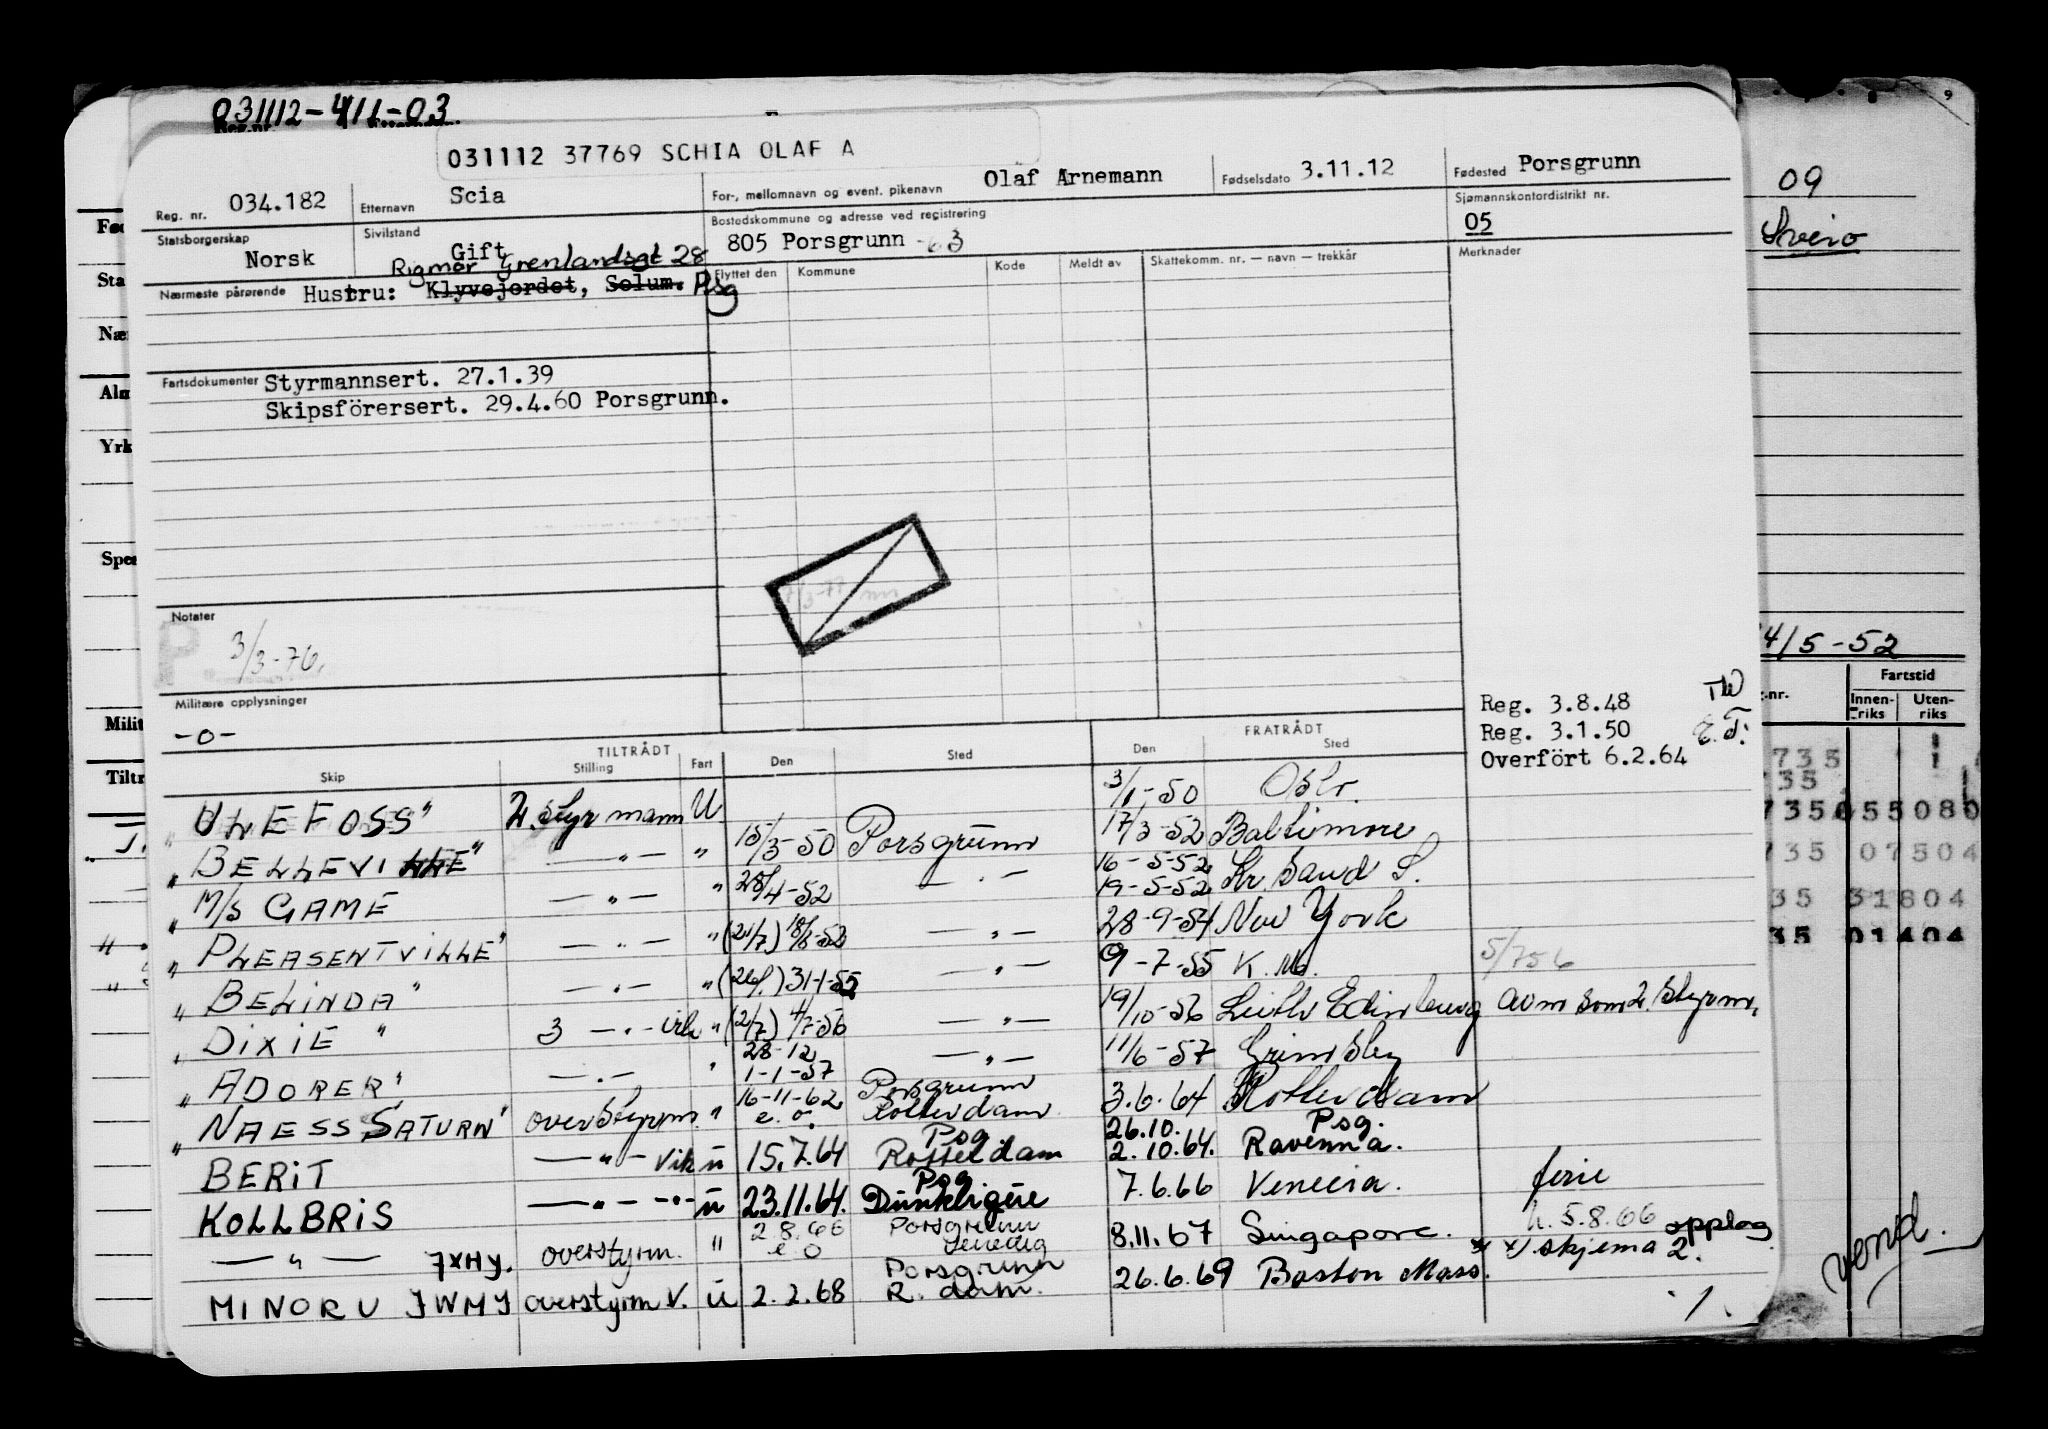 031112-411-03
031112 37769 SCHIA OLAF A
Reg. nr. 034.182 Etternavn Scia For-, mellomnavn og event. pikenavn Olaf Arnemann Fødselsdato 3.11.12 Fødested Porsgrunn
Statsborgerskap Norsk Sivilstand Gift Bostedskommune og adresse ved registrering 805 Porsgrunn -63 Sjømannskontordistrikt nr. 05
Rigmor Grenlandsgt 28
Nærmeste pårørende Hustru: Klyvejordet, Solum. Psg
Flyttet den Kommune Kode Meldt av Skattekomm. nr. — navn — trekkår Merknader
Fartsdokumenter Styrmannsert. 27.1.39
Skipsförersert. 29.4.60 Porsgrunn.
Notater
3/3-76.
Militære opplysninger
-o-
Reg. 3.8.48
Reg. 3.1.50
Overfört 6.2.64
TILTRÅDT FRATRÅDT
Skip Stilling Fart Den Sted Den Sted
"ULEFOSS" 2. styrmann U 3/1-50 Oslo.
"BELLEVILLE" —"— " 15/3-50 Porsgrunn 17/3-52 Baltimore
"M/S GAME —"— " 28/4-52 —"— 16-5-52 19-5-52 Kr. sand S.
"PLEASENTVILLE" —"— " (21/7) 18/8-52 —"— 28-9-54 New York
"BELINDA" —"— " (26/1) 31-1-55 —"— 9-7-55 K. 5/756
"DIXIE" 3 —"— vik " (2/7) 4/7-56 —"— 19/10-56 Leith Edinburg avm som 2. styrm.
"ADORER" —"— " 28-12 1-1-57 —"— 11/6-57 Grimsby
"NAESS SATURN" overstyrm. " 16-11-62 e.o. Porsgrunn Rotterdam 3.6.64 Rotterdam
BERIT —"— vik u 15.7.64 Psg. Rotterdam 26.10. 2.10.64. Psg. Ravenna.
KOLLBRIS —"— —"— u 23.11.64. Psg Dunkerque 7.6.66 Venecia. ferie
—"— JXHY. overstyrm. " 2.8.66 e.o Porsgrunn Venedig 8.11.67 Singapore. h. 5.8.66 opplag
MINORU JWMJ overstyrm V. u 2.2.68 Porsgrunn R. dam. 26.6.69 Boston Mass. x) skjema 2.
09
Sveio
4/5-52
Fartstid
Innen-riks Uten-riks
735
35
735 055080
735 07504
35 31804
35 01404
vend.